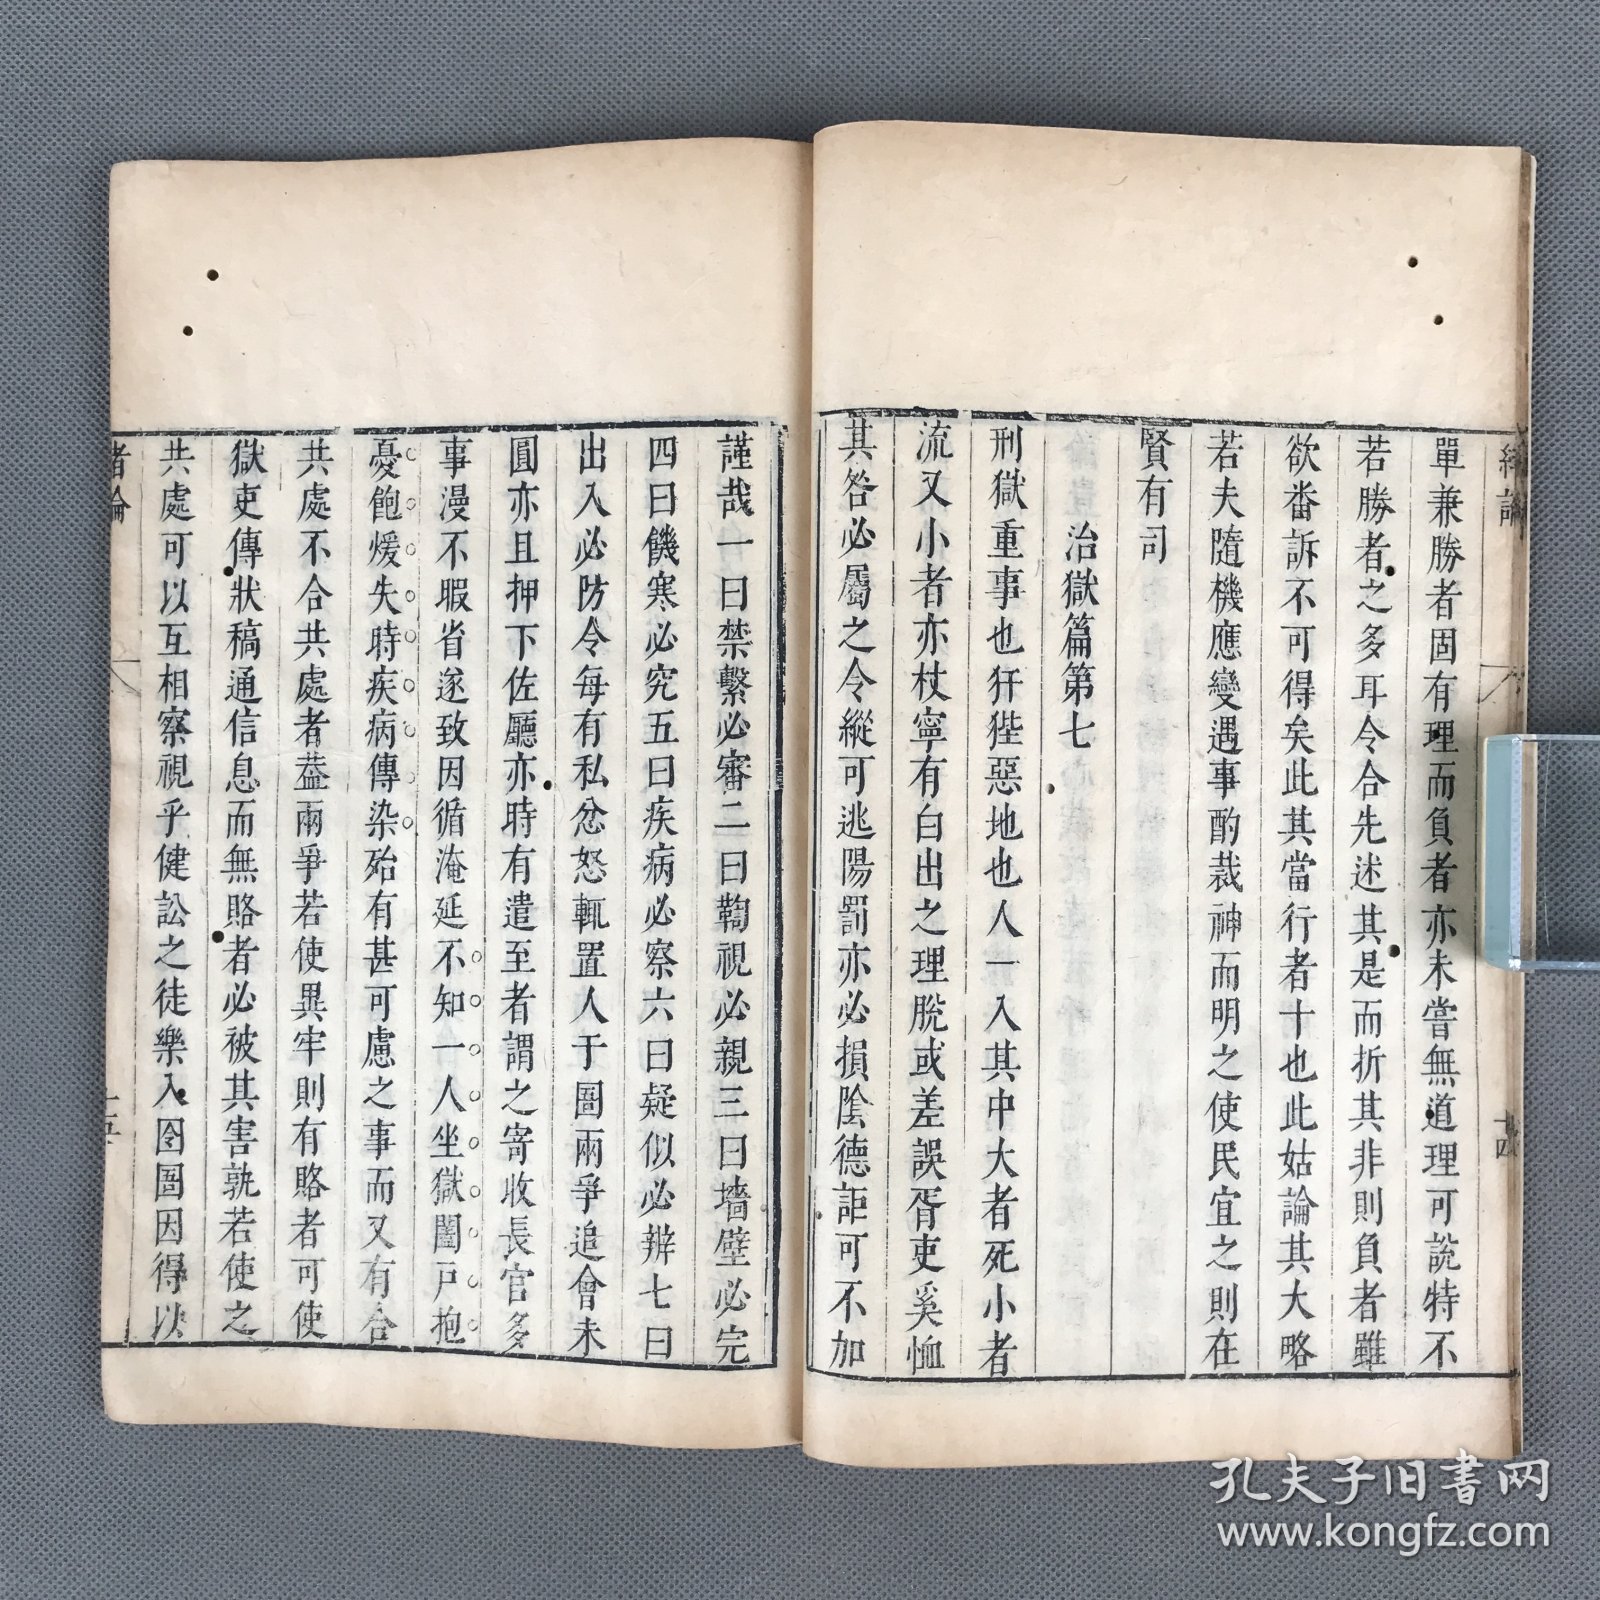 緒論
十四
單兼勝者固有理而負者亦未嘗無道理可說特不
若勝者之多耳令合先述其是而折其非則負者雖
欲番訴不可得矣此其當行者十也此姑論其大略
若夫隨機應變遇事酌裁神而明之使民宜之則在
賢有司
治獄篇第七
刑獄重事也犴狴惡地也人一入其中大者死小者
流又小者亦杖寧有白出之理脫或差誤胥吏奚恤
其咎必屬之令縱可逃陽罰亦必損陰德詎可不加
謹哉一曰禁繫必審二曰鞫視必親三曰墻壁必完
四曰饑寒必究五曰疾病必察六曰疑似必辨七曰
出入必防令每有私忿怒輒置人于圄兩爭追會未
圓亦且押下佐廳亦時有遣至者謂之寄收長官多
事漫不暇省遂致因循淹延不知一人坐獄闔戶抱
憂飽煖失時疾病傳染殆有甚可慮之事而又有合
共處不合共處者葢兩爭若使異牢則有賂者可使
獄吏傳狀稿通信息而無賂者必被其害孰若使之
共處可以互相察視乎健訟之徒樂入囹圄因得以
緒論
孔夫子旧书网
www.kongfz.com